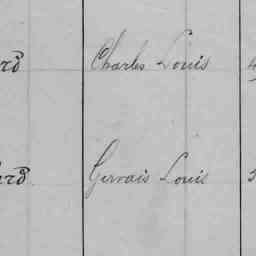 Charles Louis
Gervais Louis